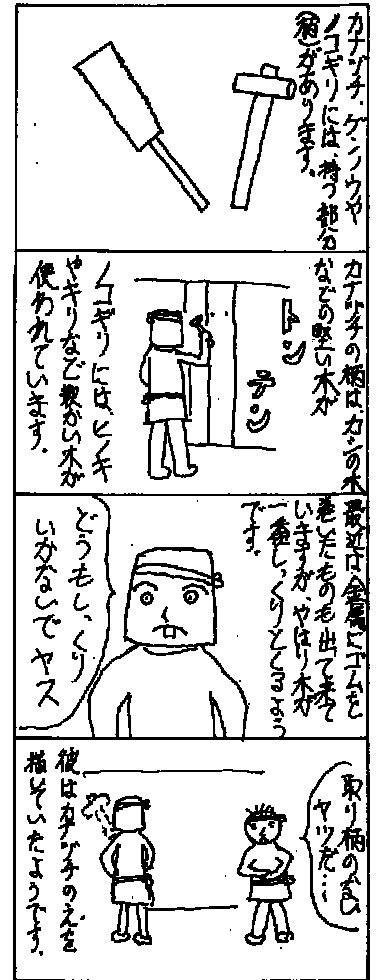 カナヅチ、ゲンノウや
ノコギリには、持つ部分
(柄)があります。
カナヅチの柄は、カシの木
などの堅い木が
トン
テン
ノコギリには、ヒノキ
やキリなど軟かい木が
使われています。
最近は、金属にゴムを
巻いたものも出て来て
いますが、やはり木が
一番しっくりとくるよう
です。
どうもしっくり
いかないでヤス
取り柄のない
ヤツだ…
彼はカナヅチのえを
描いていたようです。